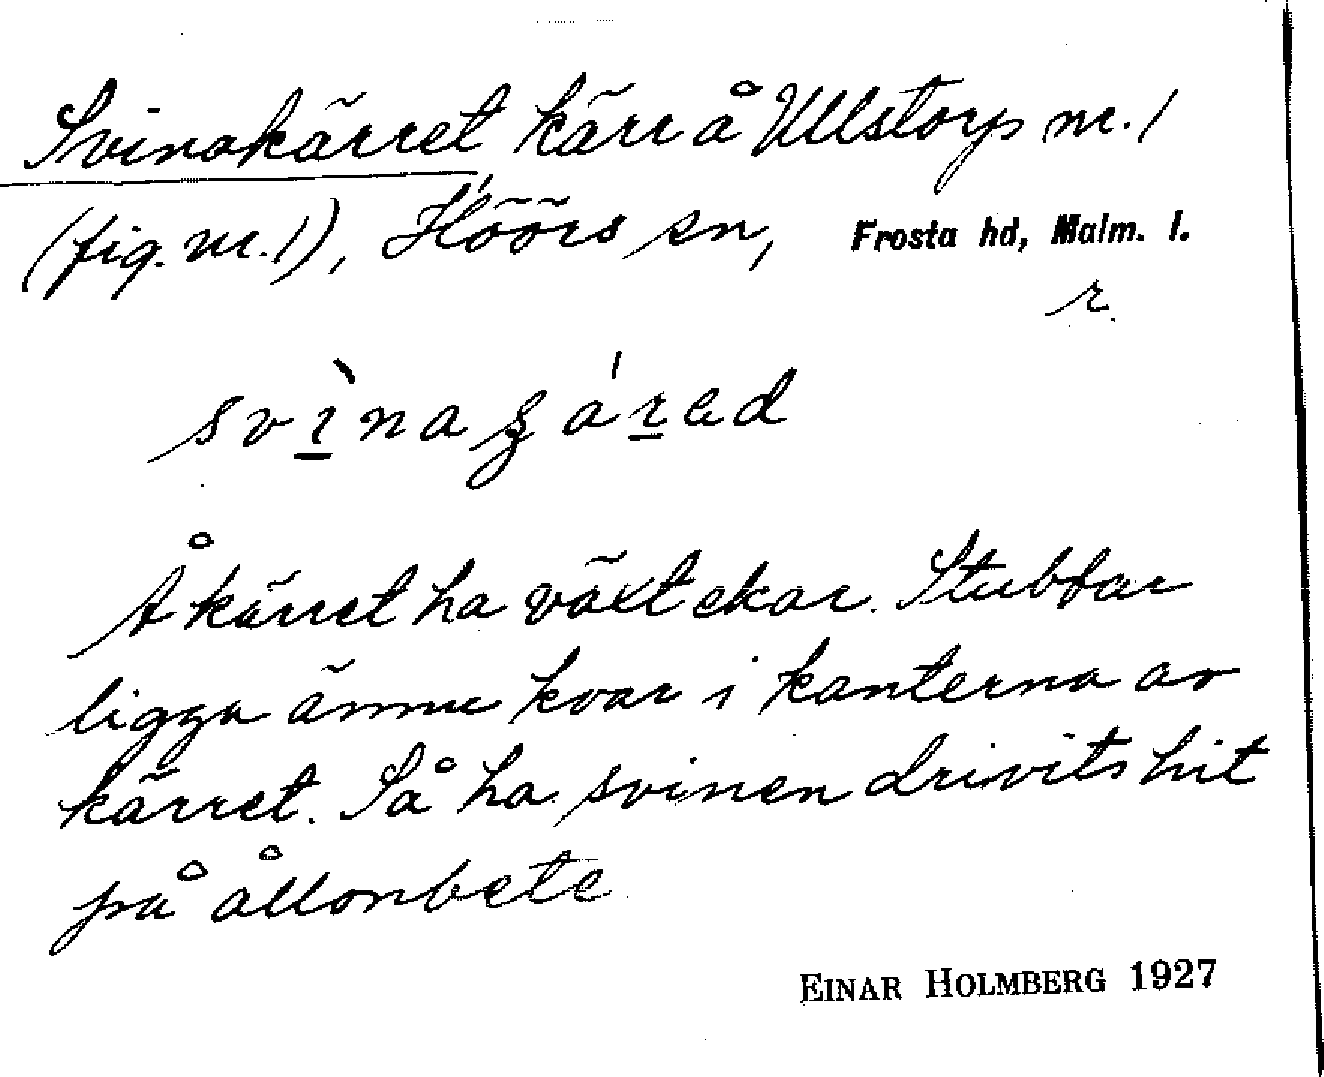 Svinakärret kärr å Ullstorp nr. 1
(fig. nr. 1), Höörs sn, Frosta hd, Malm. l.
r.
Å kärret ha växt ekar. Stubbar
ligga ännu kvar i kanterna av
kärret. Så ha svinen drivits hit
på ållonbete
EINAR HOLMBERG 1927